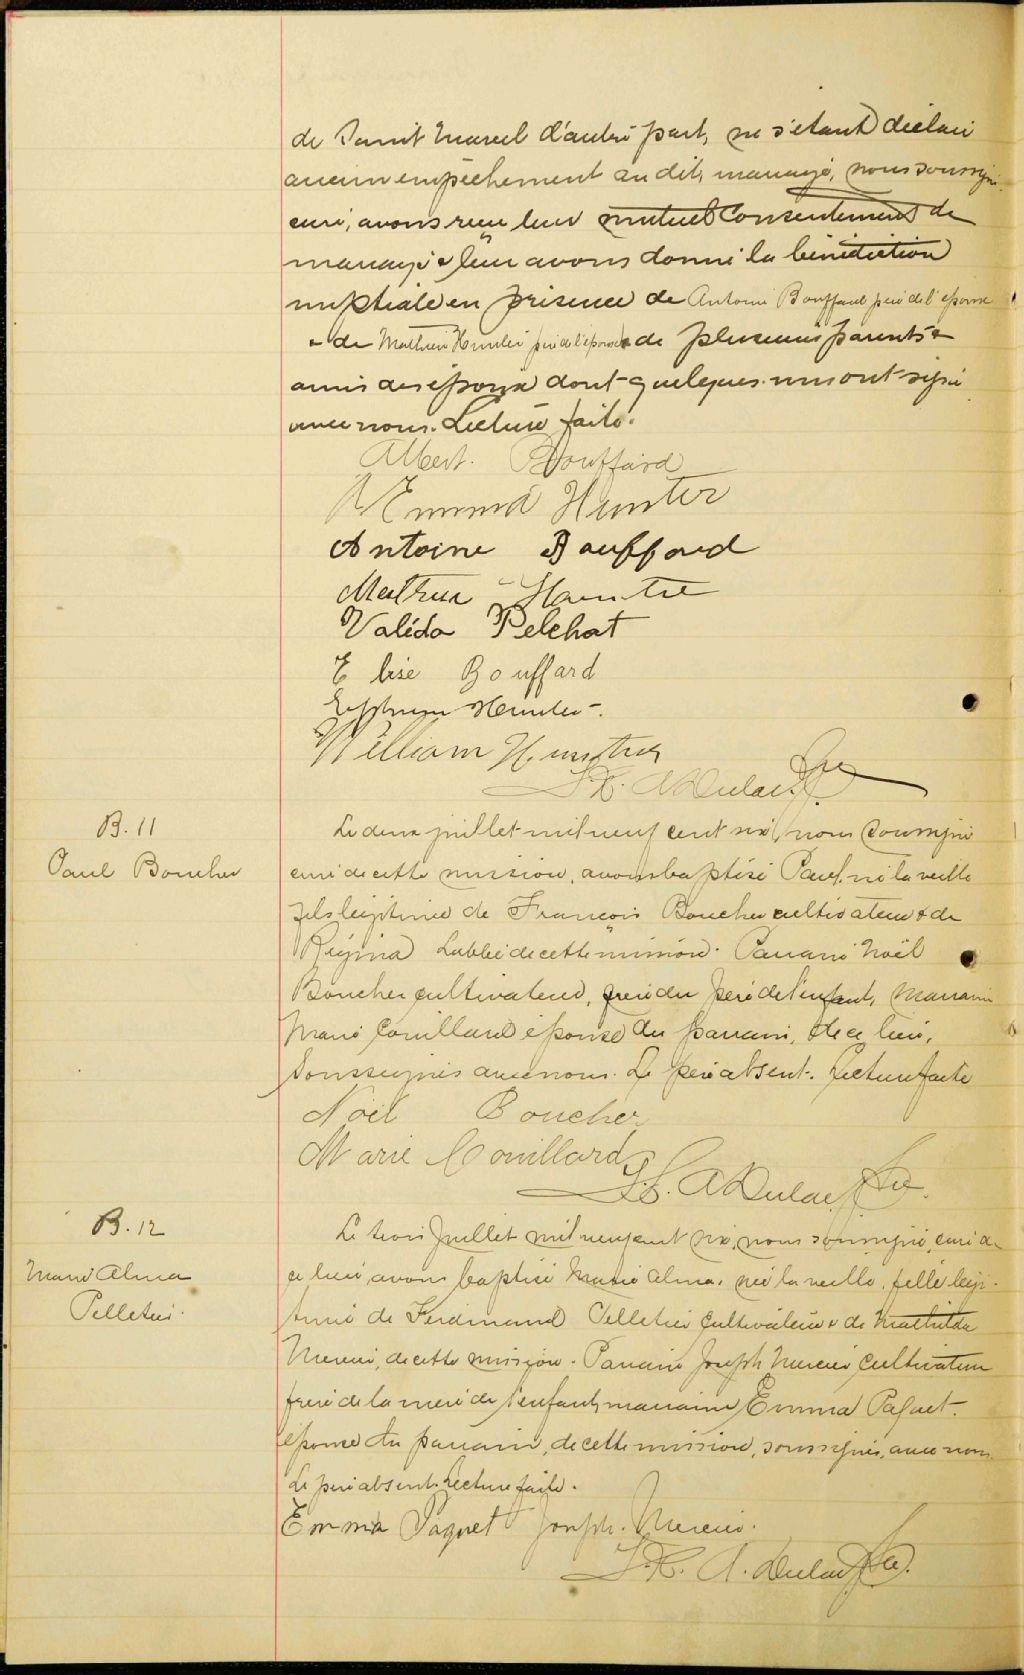 de Saint Marcel d'autre part, ne s'étant déclaré
aucun empêchement au dit mariage, nous soussigné
curé, avons reçu leur mutuel consentement de
mariage & leur avons donné la bénédiction
nuptiale en présence de Antoine Bouffard père de l'époux
& de Mathieu Hunter père de l'épouse & de plusieurs parents &
amis des époux dont quelques uns ont signé
avec nous. Lecture faite.
Albert Bouffard
Emma Hunter
Antoine Bouffard
Hunter
Valéda Pelchat
Elise Bouffard
Ephrem Hunter
William Hunter
A Dulac Ptre
B. 11
Paul Boucher
Le deux juillet mil neuf cent six, nous soussigné
curé de cette mission, avons baptisé Paul, né la veille
fils légitime de François Boucher cultivateur & de
Régina Labbé de cette mission. Parrain Noël
Boucher cultivateur, frère du père de l'enfant, marraine
Marie Couillard épouse du parrain, de ce lieu,
soussignés avec nous. Le père absent. Lecture faite
Noël Boucher
Marie Couillard
A Dulac Ptre.
B. 12
Marie Alma
Pelletier.
Le trois juillet mil neuf cent six, nous soussigné, curé de
ce lieu, avons baptisé Marie Alma, née la veille, fille légi-
time de Ferdinand Pelletier cultivateur & de Mathilda
Mercier, de cette mission. Parrain Joseph Mercier cultivateur
frère de la mère de l'enfant, marraine Emma Paquet.
épouse du parrain, de cette mission, soussignés, avec nous
Le père absent. Lecture faite.
Emma Paquet Joseph. Mercier.
A. Dulac Ptre.